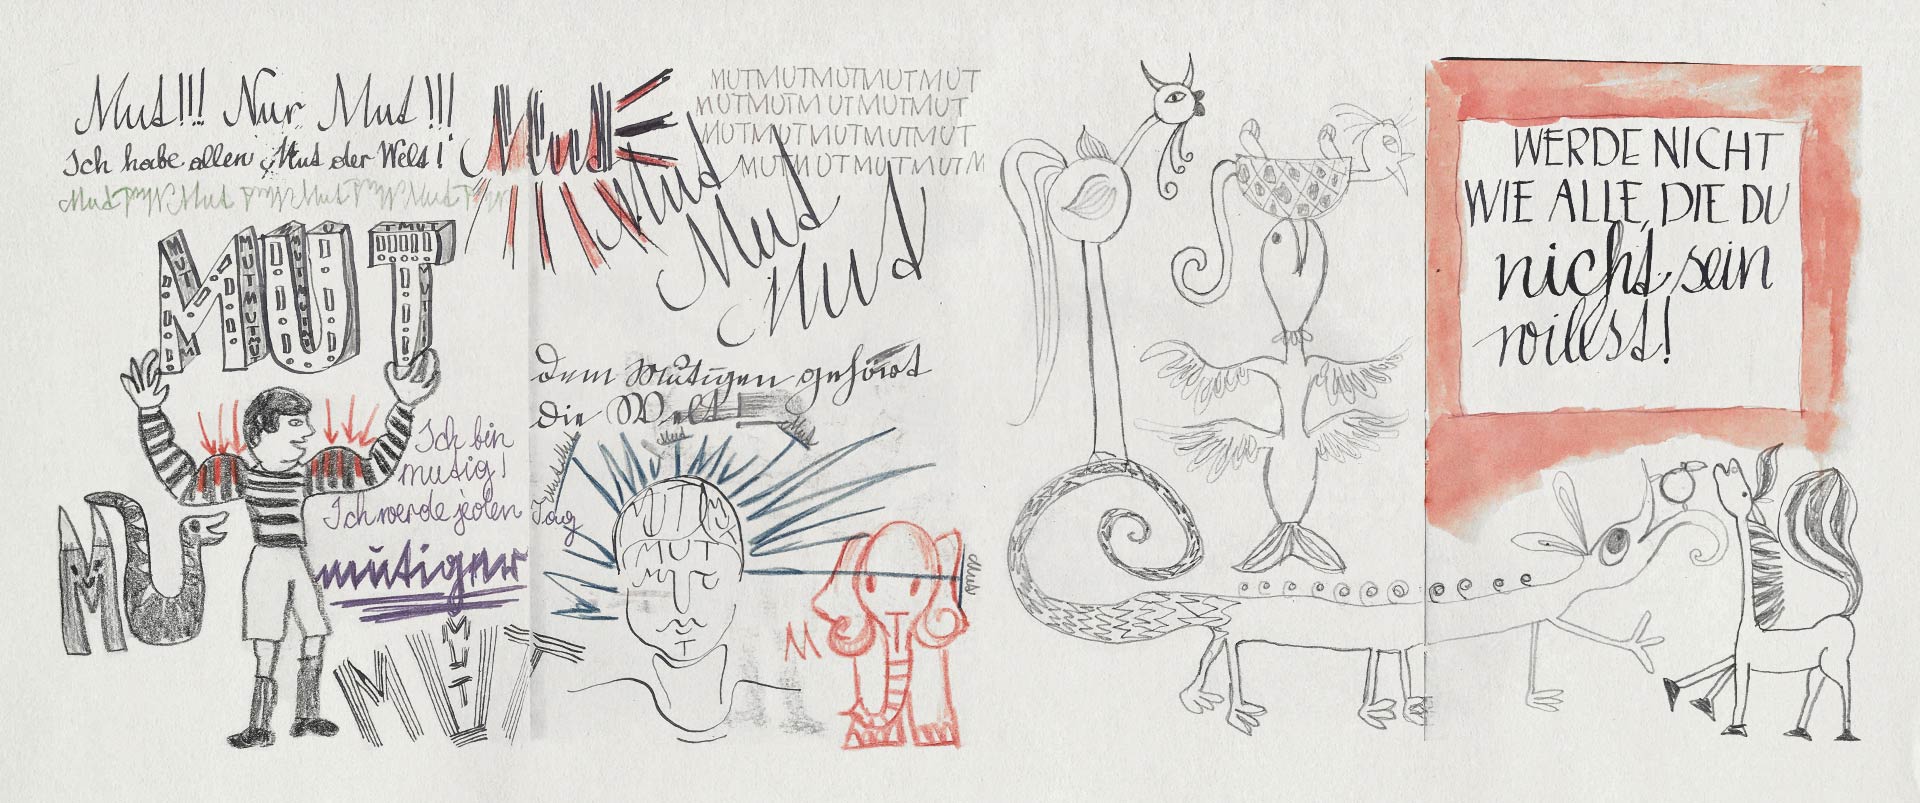 Mut!!! Nur Mut!!!
Ich habe allen Mut der Welt!
Mut Mut Mut Mut Mut Mut Mut Mut
Mut
MUTMUTMUTMUTMUT
MUTMUTMUTMUTMUT
MUTMUTMUTMUTMUT
MUTMUTMUTMUTM
Mut
Mut
Mut
MUT
Dem Mutigen gehört
die Welt!
Ich bin
mutig!
Ich werde jeden
Tag
mutiger
MU
MUT
MUT
MUT
MUT
MUT
T
M
T
Mut
WERDE NICHT
WIE ALLE, DIE DU
nicht sein
willst!